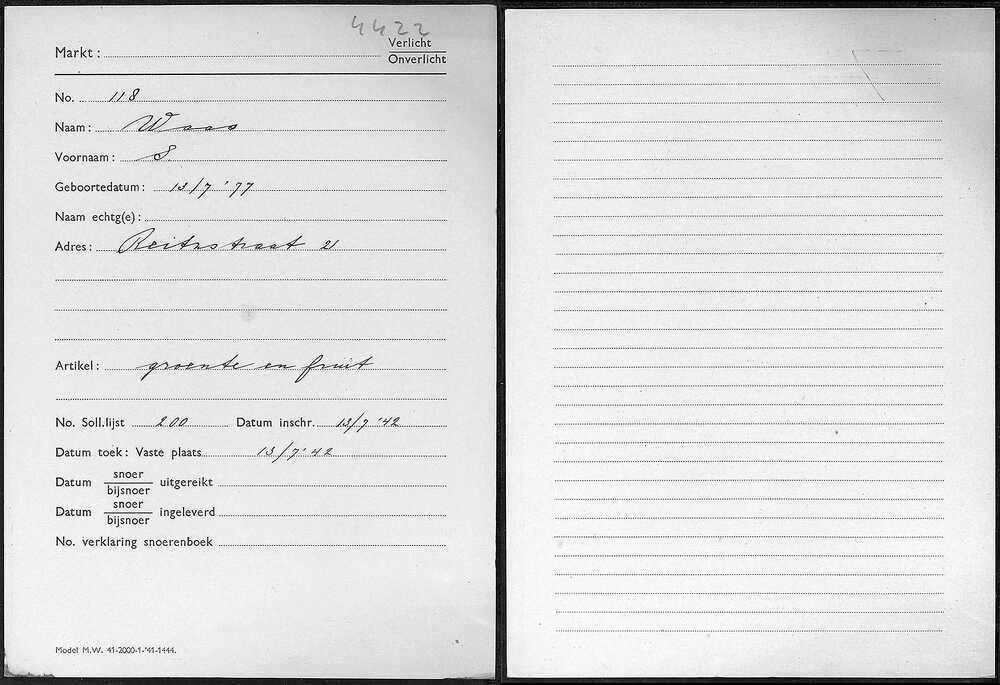 4422
Markt : Verlicht
Onverlicht
No. 118
Naam : Waas
Voornaam : S.
Geboortedatum : 13/7 '77
Naam echtg(e) :
Adres : Reitzstraat 21
Artikel : groente en fruit
No. Soll.lijst 200 Datum inschr. 13/7 '42
Datum toek : Vaste plaats 13/7 '42
Datum snoer
bijsnoer uitgereikt
Datum snoer
bijsnoer ingeleverd
No. verklaring snoerenboek
Model M.W. 41-2000-1-'41-1444.